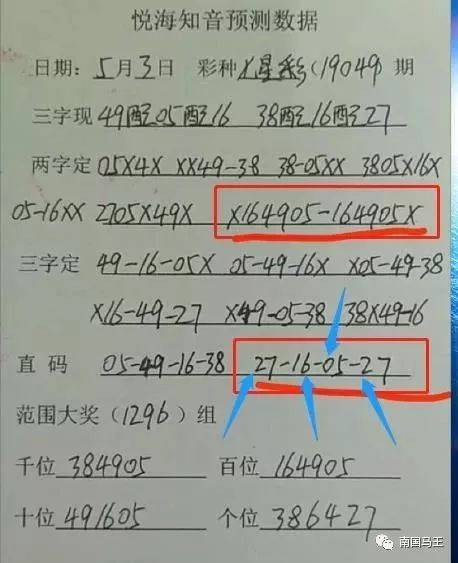 悦海知音预测数据
日期:5月3日 彩种七星彩(19049)期
三字现 49配05配16 38配16配27
两字定 05X4X XX49-38 38-05XX 3805X16X
05-16XX 2705X49X X164905-164905X
三字定 49-16-05X 05-49-16X X05-49-38
X16-49-27 X49-05-38 38X49-16
直码 05-49-16-38 27-16-05-27
范围大奖(1296)组
千位 384905 百位 164905
十位 491605 个位 386427
南国马王